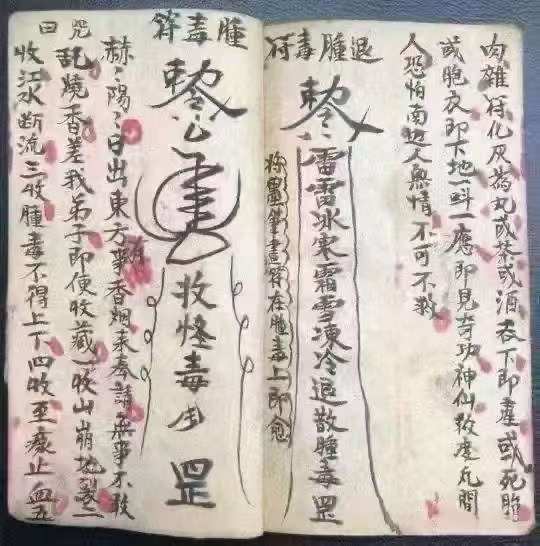 肉雄符化灰為丸或茶或酒吞下即產或死胎
或胞衣即下地一鮮一應即見奇功神仙救處凡間
人恐怕南边人無情不可不救
退腫毒符
敕令雷雷冰寒霜雪凍冷退散腫毒罡
将墨筆畫符在腫毒上即愈
腫毒符
敕令
收怪毒 罡
咒曰
赫〻陽〻日出東方事香烟来奉請無事不敢
有
乱燒香差我弟子即便收藏一收山崩地裂二
收江水断流三收腫毒不得上下四收至痕止血五